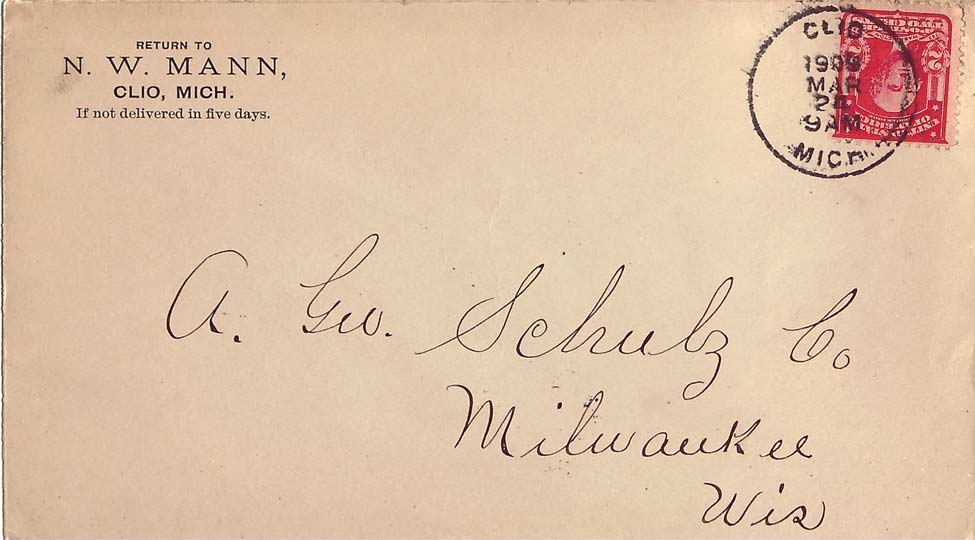 RETURN TO
N. W. MANN,
CLIO, MICH.
If not delivered in five days.
CLIO
1909
MAR
9AM
MICH.
2 2
A. Geo. Schulz Co
Milwaukee
Wis